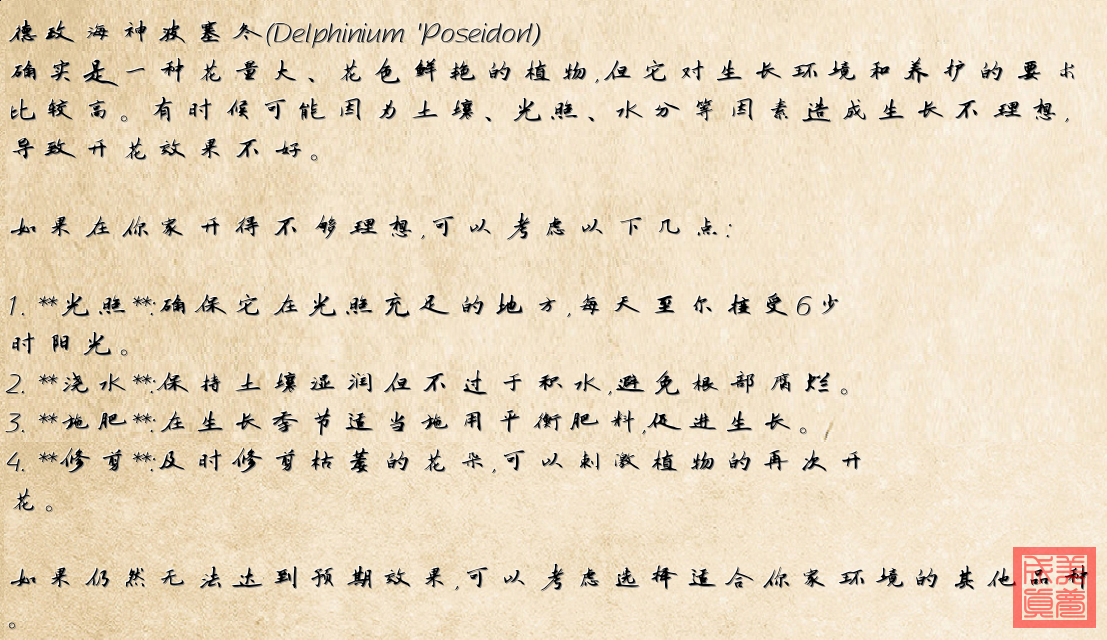 德政海神波塞冬(Delphinium 'Poseidon')
确实是一种花量大、花色鲜艳的植物,但它对生长环境和养护的要求
比较高。有时候可能因为土壤、光照、水分等因素造成生长不理想,
导致开花效果不好。
如果在你家开得不够理想,可以考虑以下几点:
1. **光照**:确保它在光照充足的地方,每天至尔接受6少
时阳光。
2. **浇水**:保持土壤湿润但不过于积水,避免根部腐烂。
3. **施肥**:在生长季节适当施用平衡肥料,促进生长。
4. **修剪**:及时修剪枯萎的花朵,可以刺激植物的再次开
花。
如果仍然无法达到预期效果,可以考虑选择适合你家环境的其他品种
。
美梦成真